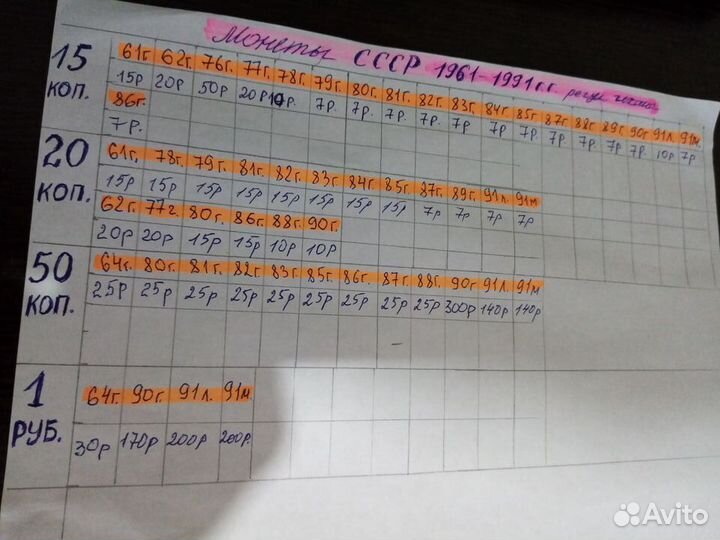 Монеты СССР 1961-1991г.г.
15 коп.
61г. 62г. 76г. 77г. 78г. 79г. 80г. 81г. 82г. 83г. 84г. 85г. 87г. 88г. 89г. 90г. 91л. 91м.
15р 20р 50р 20р 10р. 7р. 7р. 7р. 7р. 7р 7р 7р. 7р. 7р. 7р. 7р. 10р 7р
86г.
7р.
20 коп.
61г. 78г. 79г. 81г. 82г. 83г. 84г. 85г. 87г. 89г. 91л 91м
15р 15р 15р 15р 15р 15р 15р 15р 7р 7р 7р 7р
62г. 77г. 80г. 86г. 88г. 90г.
20р 20р 15р 15р 10р 10р
50 коп.
64г. 80г. 81г. 82г 83г. 85г. 86г. 87г 88г. 90г 91л. 91м
25р 25р 25р 25р 25р 25р 25р 25р 25р 300р 140р 140р
1 руб.
64г. 90г. 91л. 91м.
30р 170р 200р 200р.
Avito